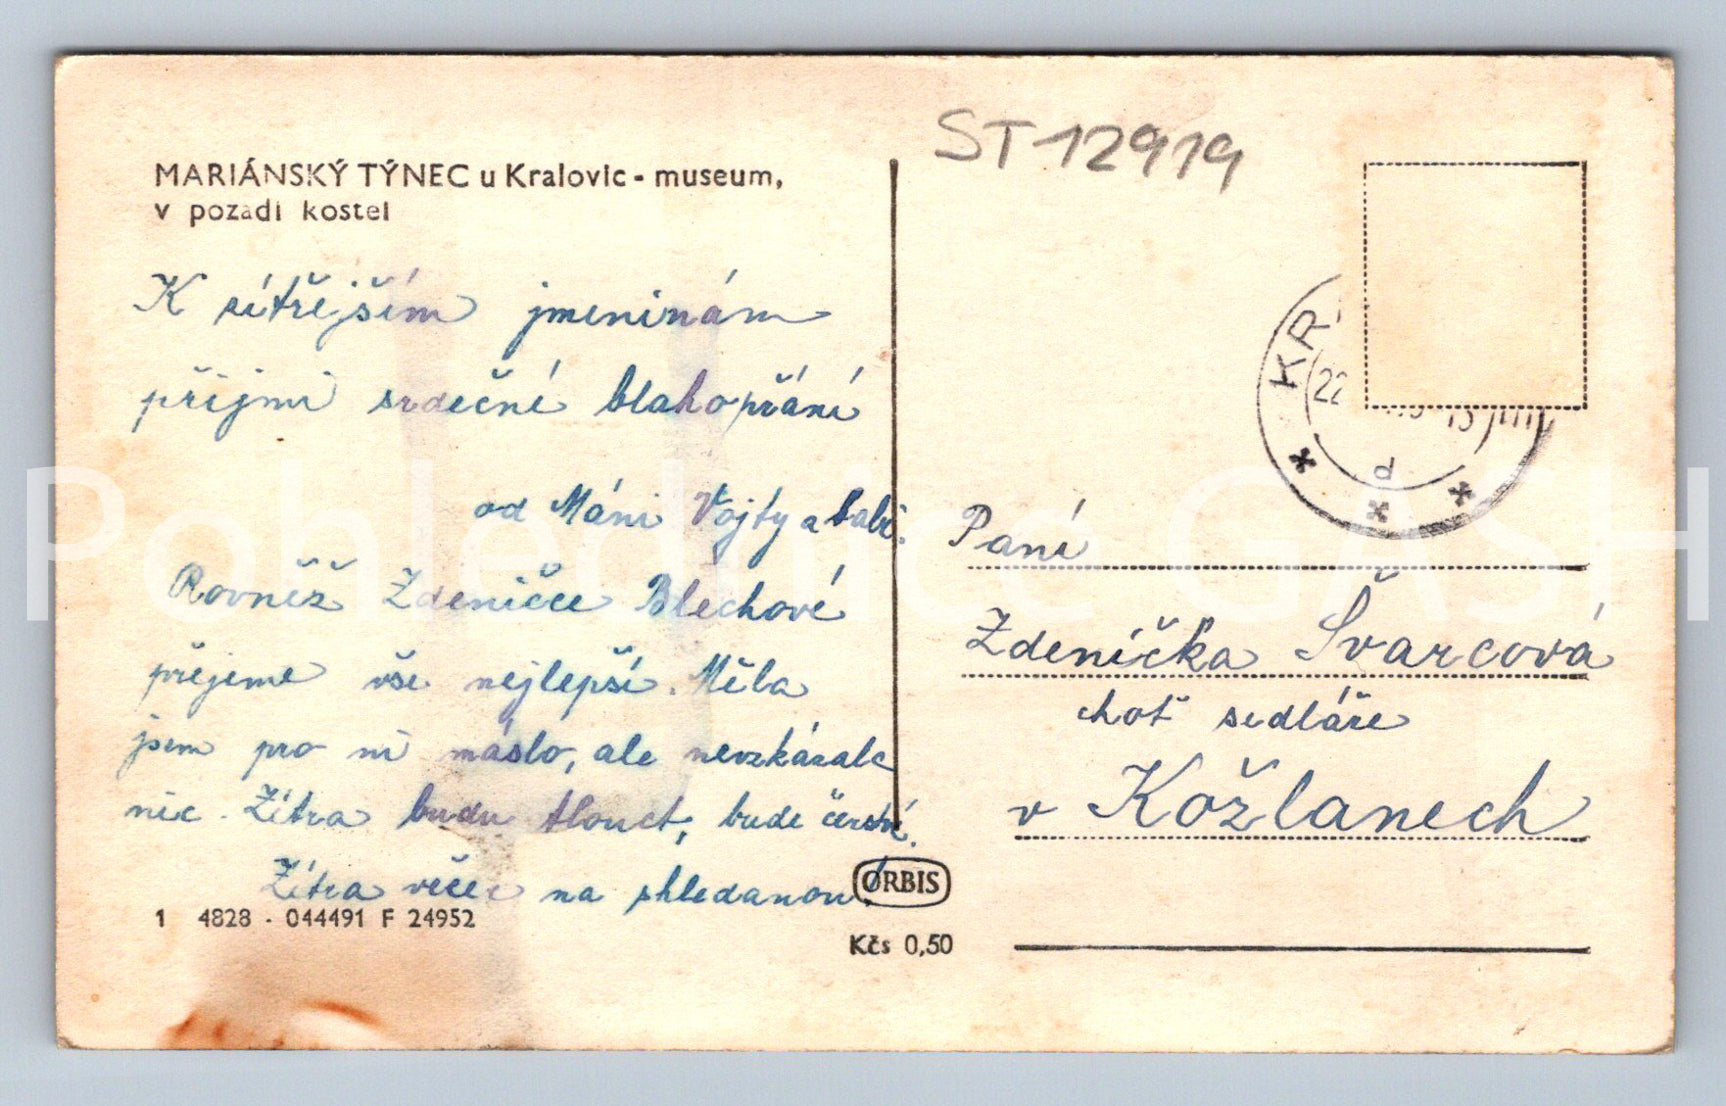 MARIÁNSKÝ TÝNEC u Kralovic - museum,
v pozadí kostel
K zítřejším jmeninám
přijmi srdečné blahopřání
od Máni Vojty a babi.
Rovněž Zdeničce Blechové
přejeme vše nejlepší. Měla
jsem pro ni máslo, ale nevzkázala
nic. Zítra budu tlouct, bude čerství.
Zítra večer na shledanou.
1 4828 - 044491 F 24952
ORBIS
Kčs 0,50
ST12919
KR
22
d
Paní
Zdenička Švarcová
choť sedláře
v Kožlanech
Pohlednice GASH